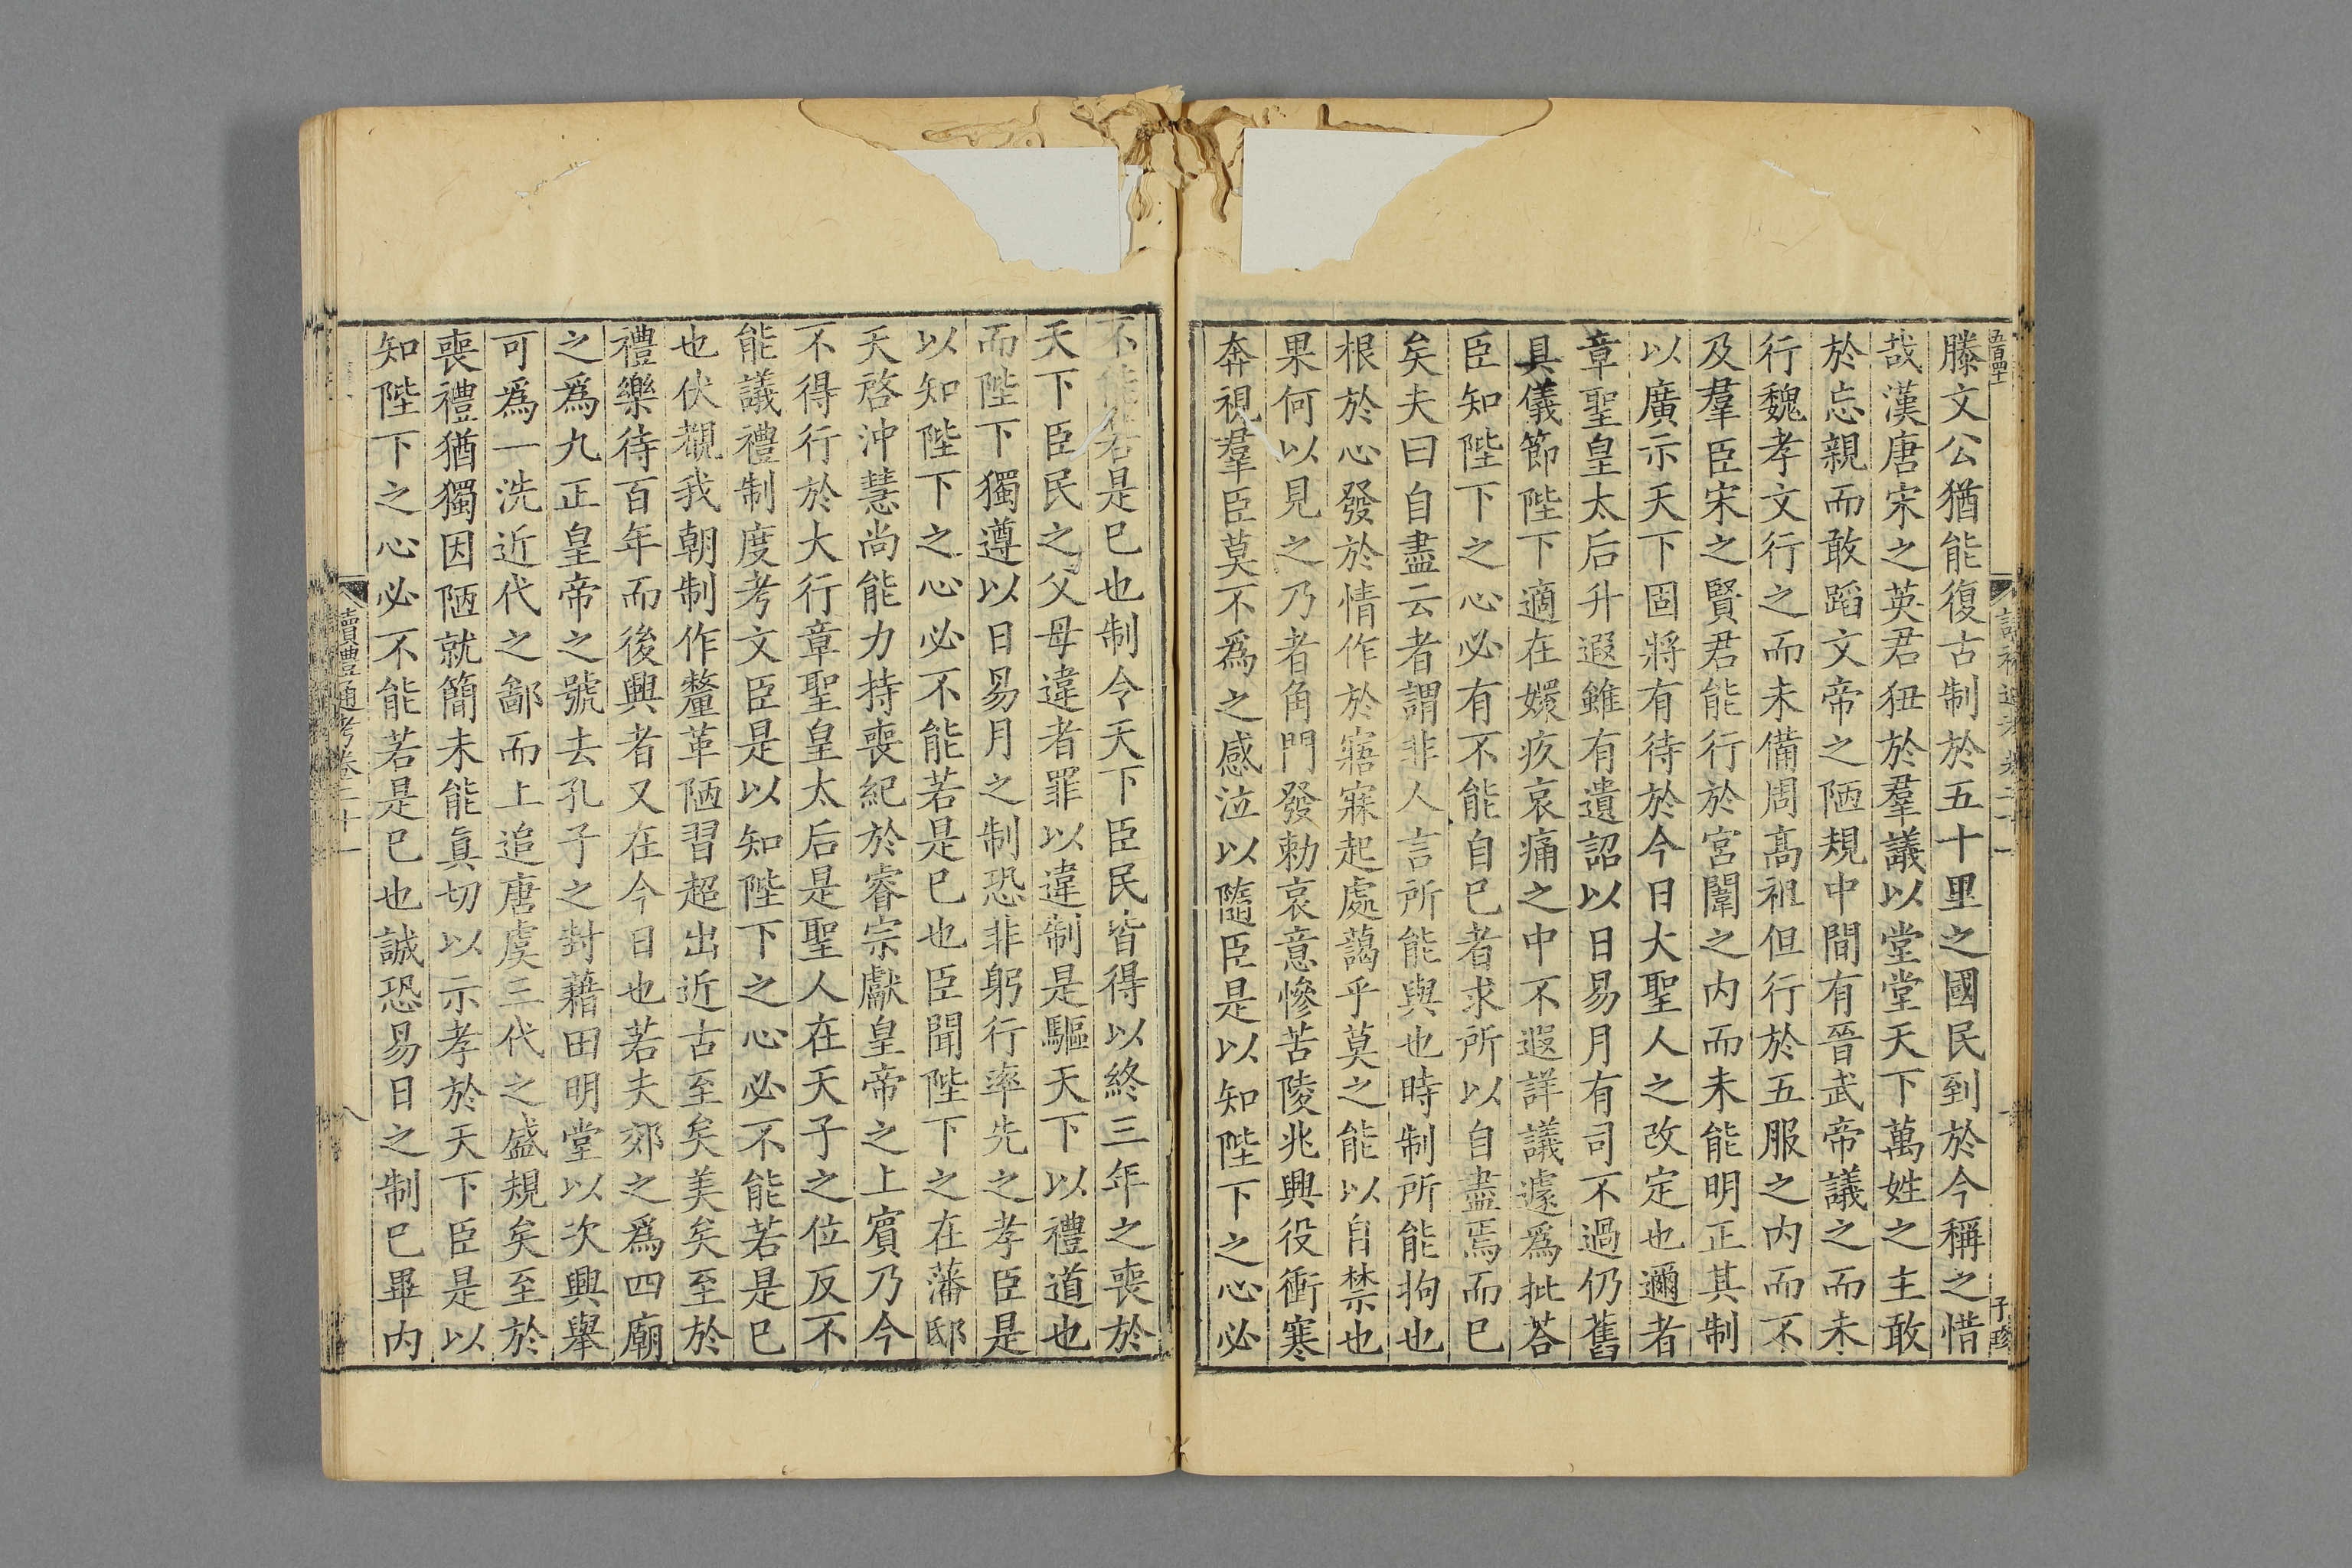 五百四十
讀禮通考卷二十一
子珍
滕文公猶能復古制於五十里之國民到於今稱之惜
哉漢唐宋之英君狃於羣議以堂堂天下萬姓之主敢
於忘親而敢蹈文帝之陋規中間有晉武帝議之而未
行魏孝文行之而未備周高祖但行於五服之内而不
及羣臣宋之賢君能行於宮闈之内而未能明正其制
以廣示天下固將有待於今日大聖人之改定也邇者
章聖皇太后升遐雖有遺詔以日易月有司不過仍舊
具儀節陛下適在嬛疚哀痛之中不遐詳議遽爲批荅
臣知陛下之心必有不能自巳者求所以自盡焉而巳
矣夫曰自盡云者謂非人言所能與也時制所能拘也
根於心發於情作於寤寐起處藹乎莫之能以自禁也
果何以見之乃者角門發勅哀意慘苦陵兆興役衝寒
奔視羣臣莫不爲之感泣以隨臣是以知陛下之心必
不能若是巳也制令天下臣民皆得以終三年之喪於
天下臣民之父母違者罪以違制是驅天下以禮道也
而陛下獨遵以日易月之制恐非躬行率先之孝臣是
以知陛下之心必不能若是巳也臣聞陛下之在藩邸
天啓沖慧尚能力持喪紀於睿宗獻皇帝之上賓乃今
不得行於大行章聖皇太后是聖人在天子之位反不
能議禮制度考文臣是以知陛下之心必不能若是巳
也伏覩我朝制作釐革陋習超出近古至矣美矣至於
禮樂待百年而後興者又在今日也若夫郊之爲四廟
之爲九正皇帝之號去孔子之封藉田明堂以次興舉
可爲一洗近代之鄙而上追唐虞三代之盛規矣至於
喪禮猶獨因陋就簡未能眞切以示孝於天下臣是以
知陛下之心必不能若是巳也誠恐易日之制巳畢内
讀禮通考卷二十一
八